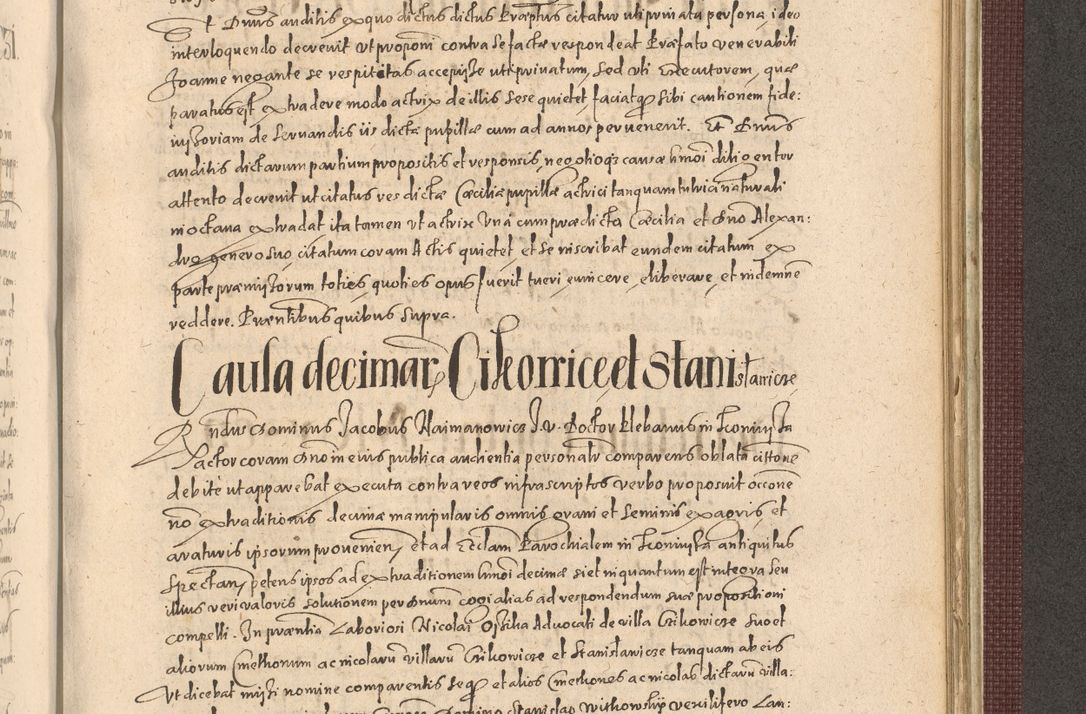 Et Dnus auditis ex quo dictus dictus Praeptus citatur uti privata persona ideo
interloquendo decrevit ut proponi contra se facta respondeat Praefato venerabili
Joanne negante se respicitas accepisse uti privatum, sed uti executorem, quae
paratus est extradere modo actrix de illis sese quietet faciatqz sibi cautionem fide:
iussoriam de servandis iis dictae pupillae cum ad annos pervenerit. Et Dnus
auditis dictarum partium propositis et responsis, negotioqz causae hmoi diligenter
attento decrevit ut citatus res dictae Caeciliae pupillae actrici tanquam tutrici naturali
in octava extradat ita tamen ut actrix una cum praedicta Caecilia et Gnoso Alexan:
dro genero suo citatum coram Actis quietet, et se inscribat eundem citatum ex
parte praemissorum toties quoties opus fuerit tueri evincere, eliberare, et indemne
reddere. Praentibus quibus supra.
Causa decimar Cikowice et Stanislawicze
Rndus dominus Jacobus Naimanowicz J.V. Doctor Plebanus in Lconiussa
Actor coram Dno in eius publica audientia personalr comparens oblata cittone
debite ut apparebat executa contra reos infrascriptos verbo proposuit occone
no extraditionis decimae manipularis omnis grani et seminis ex agris, et
araturis ipsorum provenien, et ad Ecclam Parochialem in Lconiussa antiquitus
spectan, petens ipsos ad extraditionem hmoi decimae si et inquantum est integra seu
illius veri valoris solutionem per Dnum cogi alias ad respondendum suae propositioni
compelli. In praentia Laboriosi Nicolai Ostilia Advocati de villa Czikowicze suo et
aliorum Cmethonum ac incolarum villarum Czikowicze et Stanislawicze tanquam ab eis
ut dicebat missi nomine comparentis seqz et alios Cmethones ac incolas dictarum villa:
Domino Stanislao Withowsky vexillifero Lan: